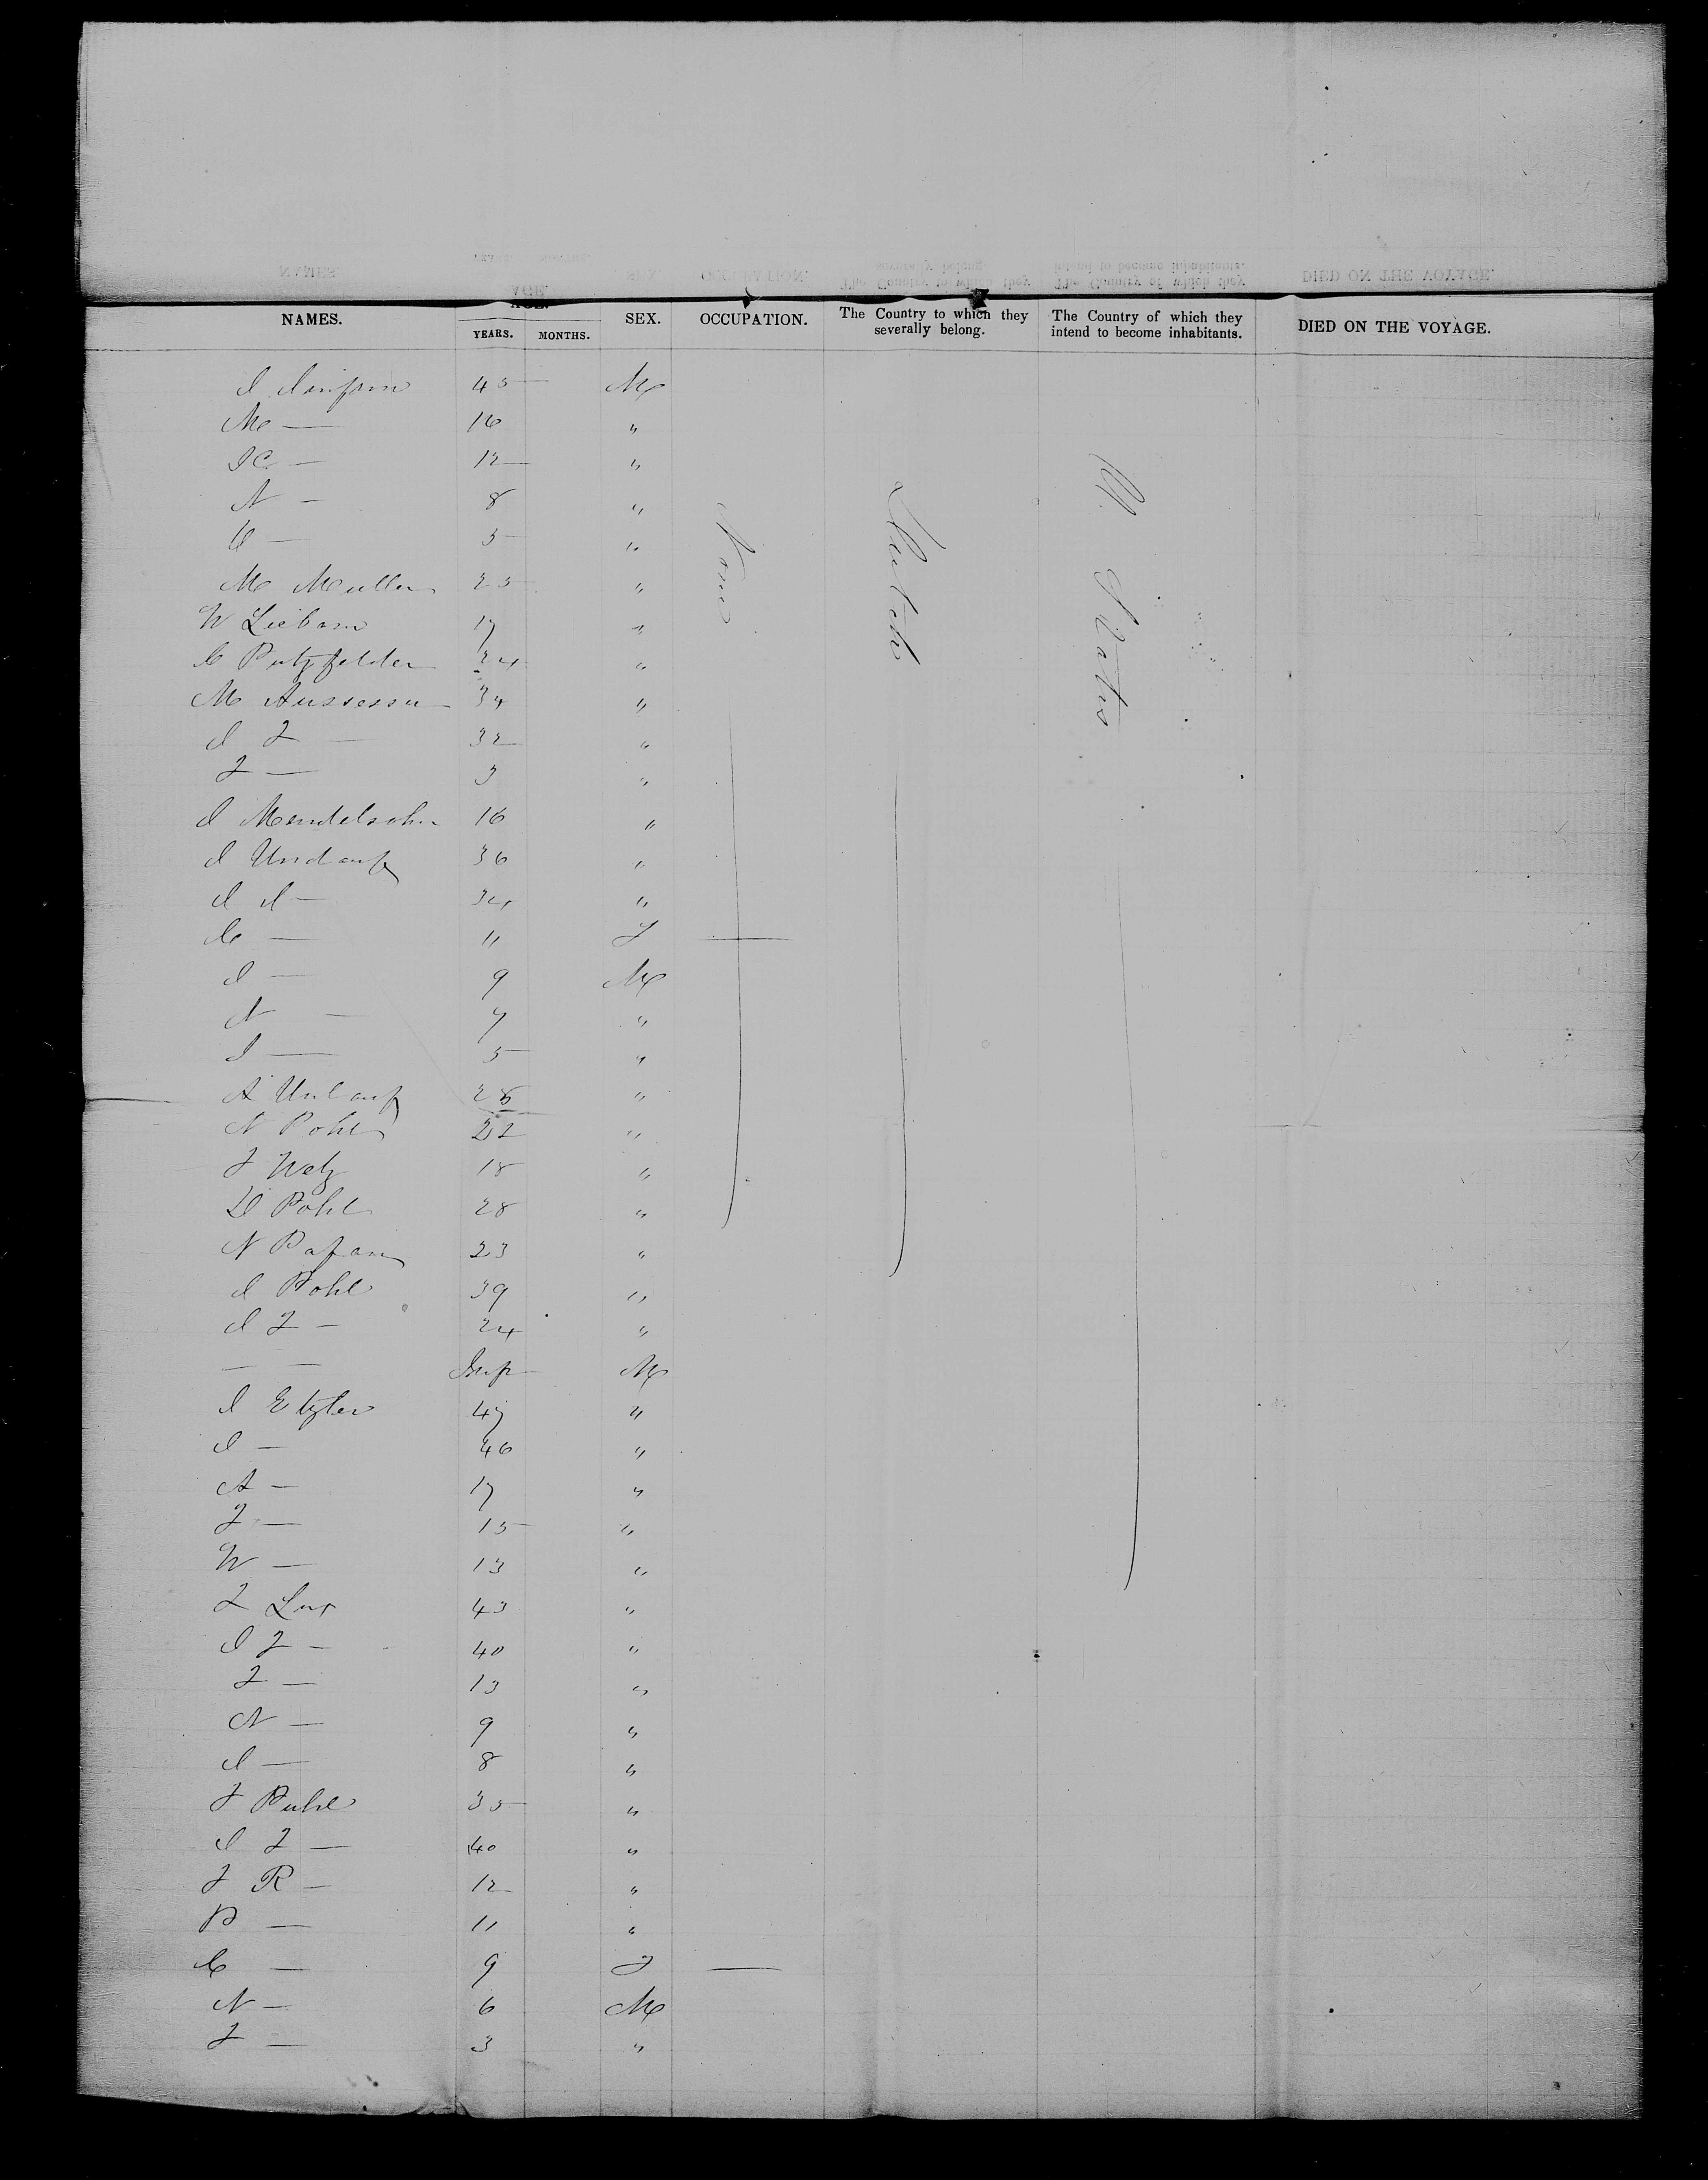 NAMES. AGE. YEARS. MONTHS. SEX. OCCUPATION. The Country to which they severally belong. The Country of which they intend to become inhabitants. DIED ON THE VOYAGE.
45 M
M — 16 "
12 "
N — 8 "
— 5 "
M Muller 25 "
W Liebam 17 "
C Putzfelder 24 "
M Aussessu 34 "
— 32 "
J — 3 "
I Mendelsohn 16 "
I Undauf 36 "
I I — 34 "
C — 11 F —
I — 9 M
N — 7 "
I — 5 "
A Unlauf 28 "
N Pohl 22 "
J Welz 18 "
D Pohl 28 "
N 23 "
I Pohl 39 "
I J — 24 "
— — Inf M
I Etzler 47 "
I — 46 "
A — 17 "
J — 15 "
W — 13 "
J Lux 43 "
I J — 40 "
J — 13 "
N — 9 "
I — 8 "
J Puhl 35 "
I J — 40 "
J R — 12 "
P — 11 "
C — 9 F —
N — 6 M
J — 3 "
None
Dutch
U. States